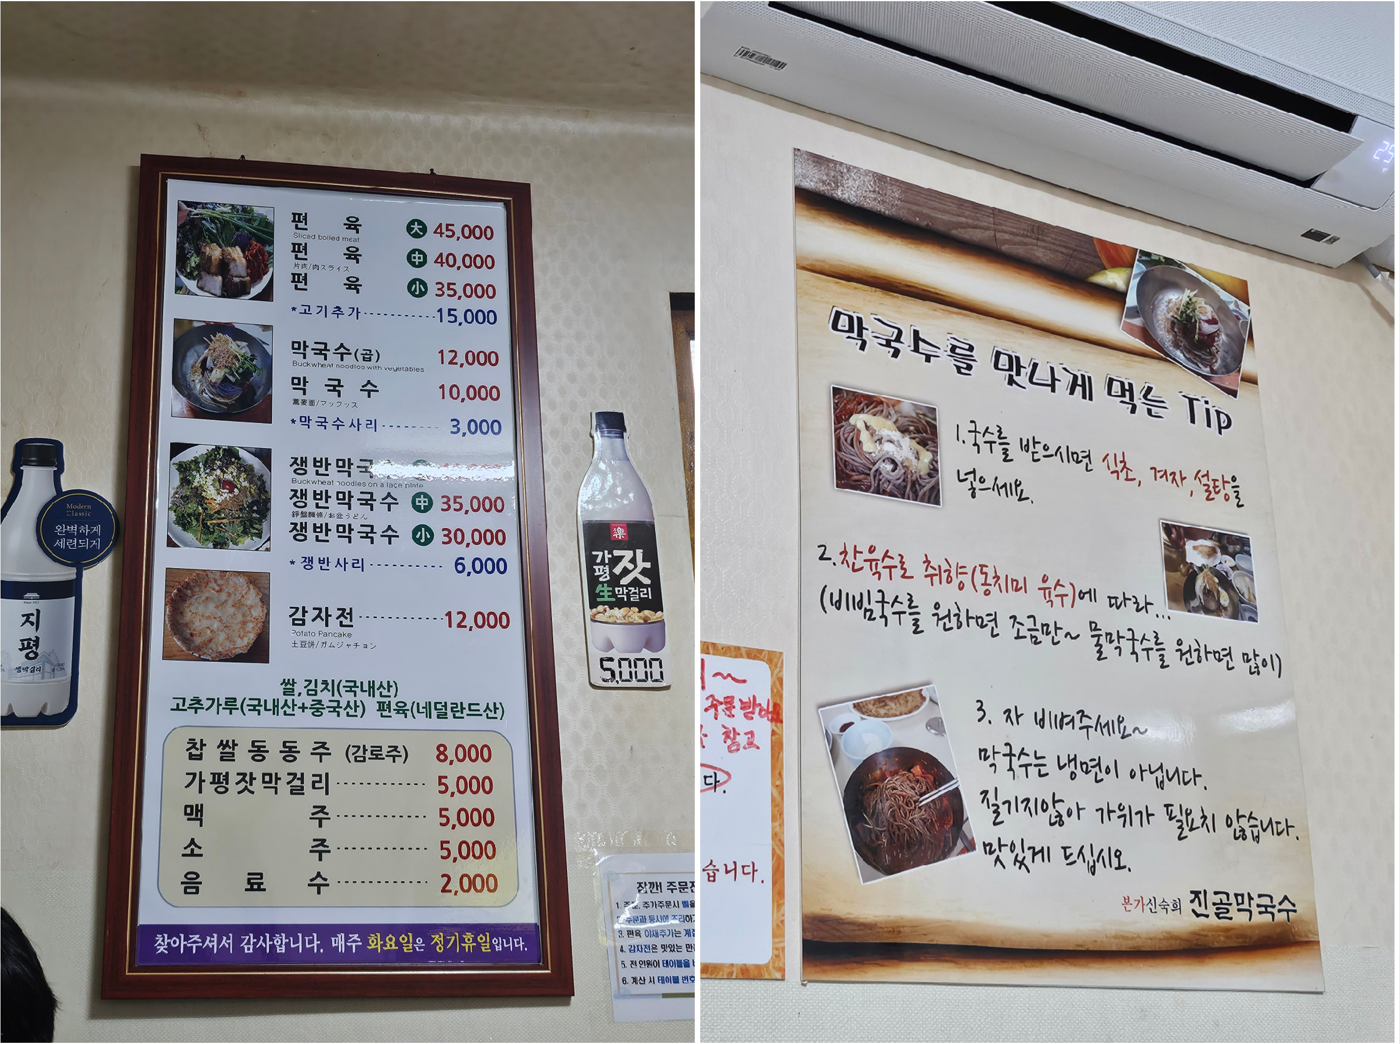 편 육 大 45,000
Sliced boiled meat
편 육 中 40,000
片肉/肉スライス
편 육 小 35,000
*고기추가 15,000
막국수(곱) 12,000
Buckwheat noodles with vegetables
막 국 수 10,000
蕎麥面/マックッス
*막국수사리 3,000
쟁반막국
Buckwheat noodles on a lace plate
쟁반막국수 中 35,000
쟁반막국수 小 30,000
*쟁반사리 6,000
감자전 12,000
Potato Pancake
土豆饼/ガムジャチョン
쌀,김치(국내산)
고추가루(국내산+중국산) 편육(네덜란드산)
찹쌀동동주 (감로주) 8,000
가평잣막걸리 5,000
맥 주 5,000
소 주 5,000
음 료 수 2,000
찾아주셔서 감사합니다. 매주 화요일은 정기휴일입니다.
Modern
Classic
완벽하게
세련되게
지평
가평 잣
生막걸리
5,000
잠깐! 주문전
4. 감자전은 맛있는
5. 전 인원이 테이블을
6. 계산 시 테이블 번호
주문받아요
참고
다.
습니다.
막국수를 맛나게 먹는 Tip
1.국수를 받으시면 식초, 겨자,설탕을
넣으세요.
2.찬육수로 취향(동치미 육수)에 따라...
(비빔국수를 원하면 조금만~ 물막국수를 원하면 많이)
3. 자 비벼주세요~
막국수는 냉면이 아닙니다.
질기지않아 가위가 필요치 않습니다.
맛있게 드십시오.
본가신숙희 진골막국수